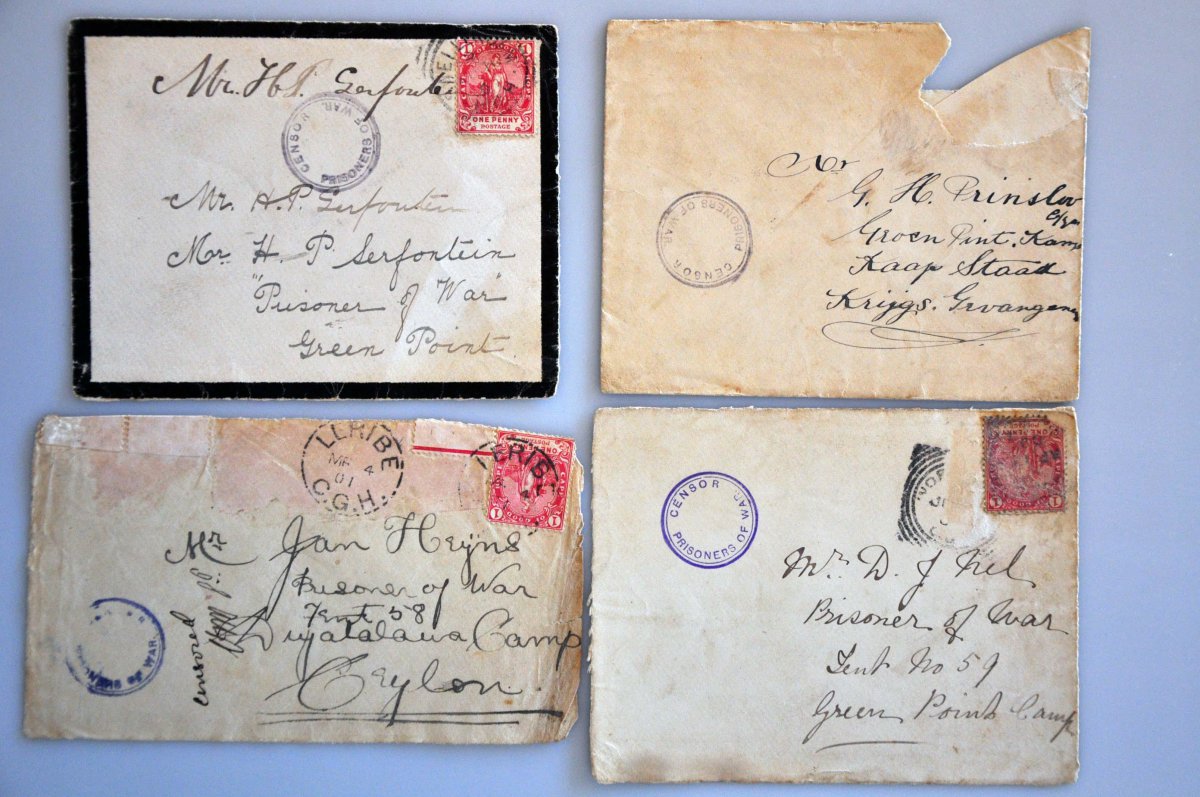 Mr. H.P. Serfontein
CENSOR
PRISONERS OF WAR.
ONE PENNY
POSTAGE
Mr. H.P. Serfontein
Mr. H. P. Serfontein
"Prisoner of War"
Green Point.
Mr
G. H. Prinsloo
Groen Pint. Kamp
Kaap Staad
Krijgs. Gevangene
CENSOR
PRISONERS OF WAR.
LERIBE
MR 4
01
C.G.H.
LERIBE
ONE PENNY
POSTAGE
Mr Jan Heyns
Prisoner of War
Tent 58
Diyatalawa Camp
Ceylon.
censored
PRISONERS OF WAR.
CENSOR
PRISONERS OF WAR.
ONE PENNY
POSTAGE
Mr. D. J Nel
Prisoner of War
Tent No 59
Green Point Camp